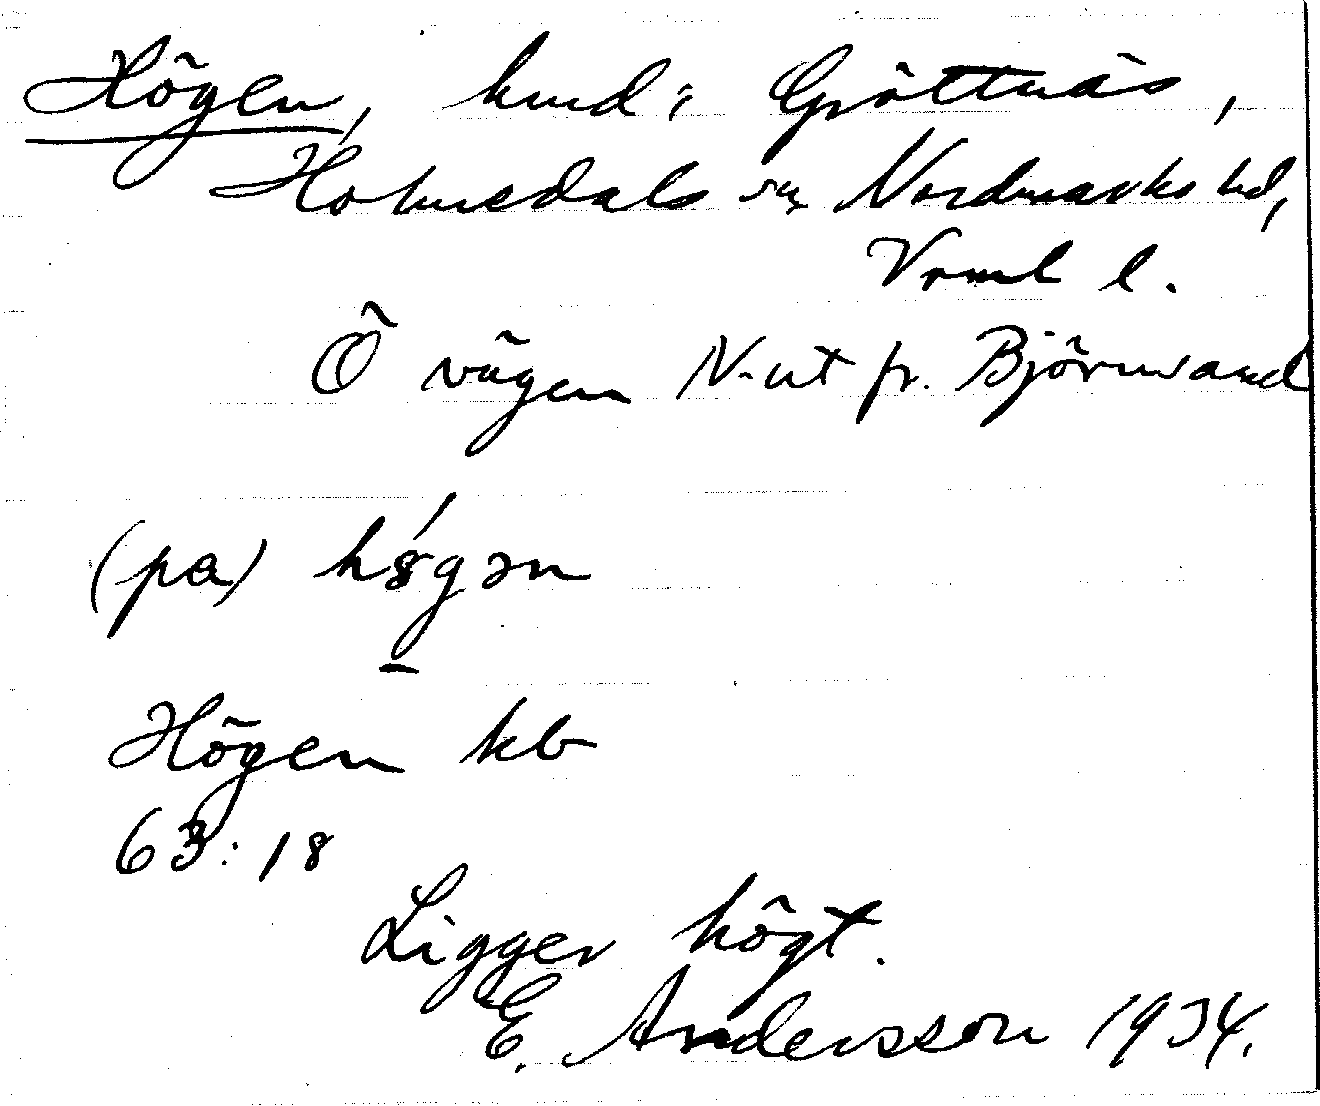 Högen, hmd i Gröttnäs,
Holmedals sn, Nordmarks hd,
Vrml l.
Ö vägen N-ut fr. Björnvand
(pa) hǿgən
Högen kb
63:18
Ligger högt.
E. Andersson 1934.